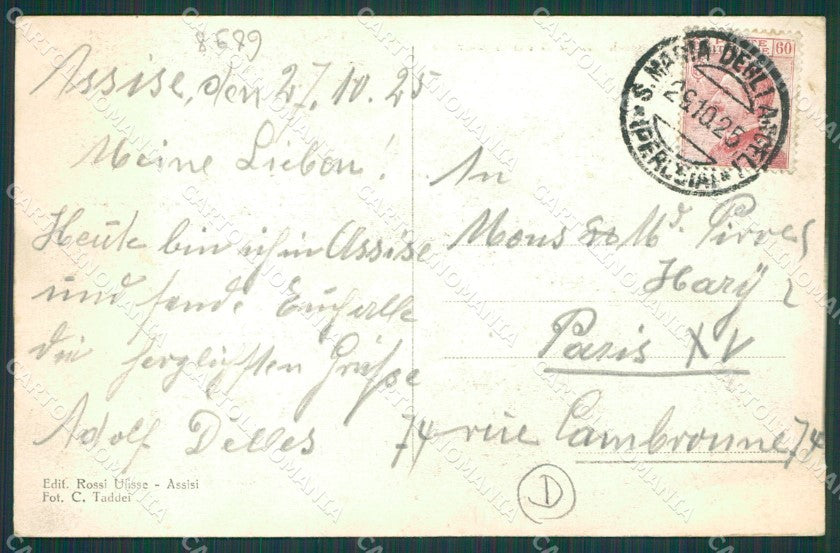 8689
Assise, den 27.10.25
Meine Lieben!
Heute bin ich in Assise
und sende Euch alle
die herzlichsten Grüsse
Adolf Delles
An
Mons & Md. Pirres
Harÿ
Paris XV
74 rue Cambronne 74
60
S. MARIA DEGLI ANGELI
29.10.25
(PERUGIA)
Edit. Rossi Ulisse - Assisi
Fot. C. Taddei
D
CARTOLINOMANIA